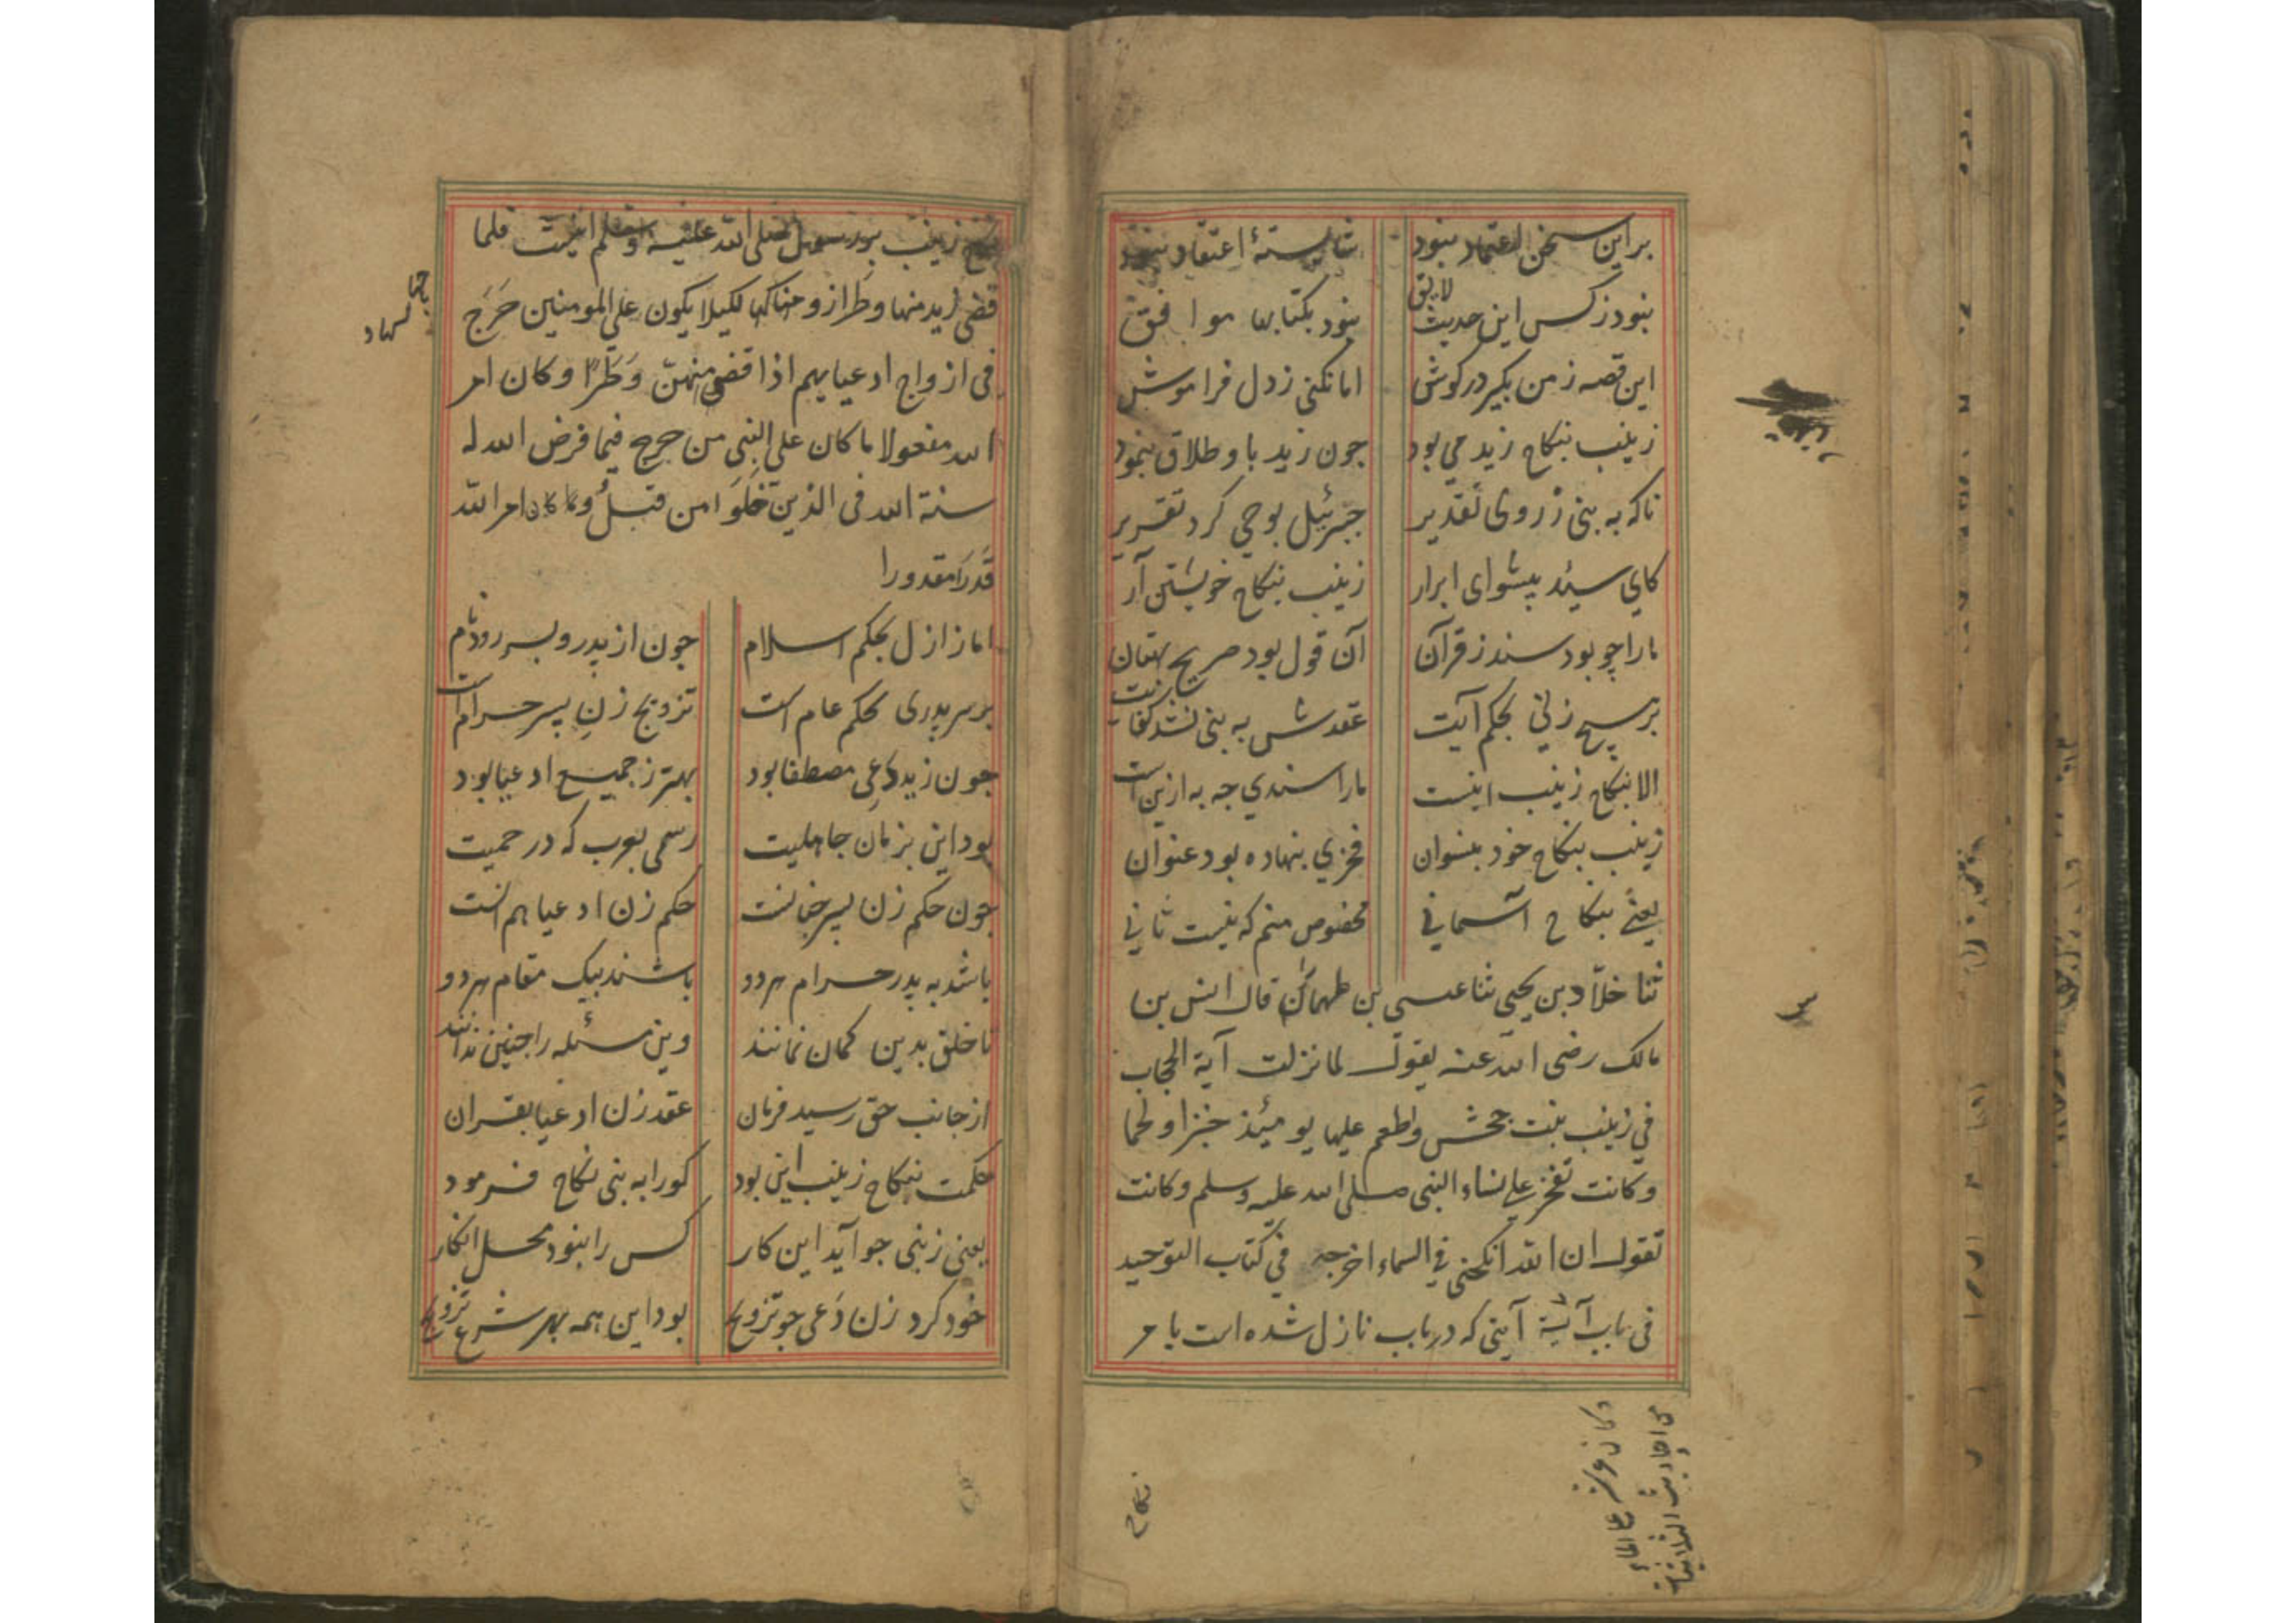 بر این سخن اعتماد نبود شایستهٔ اعتقاد نبود
لایق
نبود ز کس این حدیث نبود بکتابها موافق
این قصه ز من بکیر در کوش اما نکنی ز دل فراموش
زینب بنکاح زید می بود جون زید باو طلاق بنمود
ناکه به نبی ز روی تقدیر جبرئیل بوحی کرد تقریر
کای سید پیشوای ابرار زینب بنکاح خویشتن آر
ما را چو بود سند ز قرآن آن قول بود صریح بهتان
بر هیچ زنی بحکم آیت عقدش به نبی نشد کفایت
الا بنکاح زینب اینست ما را سندی جه به ازین است
زینب بنکاح خود بنسوان فخری بنهاده بود عنوان
یعنی بنکاح آسمانی مخصوص منم که نیست ثانی
ثنا خلاد بن یحیی ثنا عیسی بن طهمان قال انس بن
مالک رضی الله عنه یقول لما نزلت آیة الحجاب
فی زینب بنت جحش واطعم علیها یومئذ خبزا ولحما
وکانت تفخر علی نساء النبی صلی الله علیه وسلم وکانت
تقول ان الله انکحنی فی السماء اخرجه فی کتاب التوحید
فی باب آیة آیتی که در باب نازل شده است با مر
نکاح
وکان عرشه علی الماء
من احادیث الثلاثیات
نکاح زینب بر رسول صلی الله علیه وسلم اینست فلما
قضی زید منها وطرا زوجناکها لکیلا یکون علی المومنین حَرَج
فی ازواج ادعیایهم اذا قضی منهن وَطَرًا وکان امر
الله مفعولا ما کان علی النبی من حرج فیما فرض الله له
سنة الله فی الذین خَلَوا من قبلُ وکان امر الله
قَدَرَا مقدورا
اما ز ازل بحکم اسلام جون از پدر و پسر رود نام
بر سر پدری بحکم عام است تزویج زنِ پسر حرام است
جون زید دَعِی مصطفا بود بهتر ز جمیع ادعیا بود
بود این بزمان جاهلیت رسمی بعرب که در حمیت
جون حکم زن پسر جنانست حکم زن ادعیا هم آنست
باشد به پدر حرام هر دو باشند بیک مقام هر دو
تا خلق بدین کمان نمانند وین مسئله را جنین ندانند
از جانب حق رسید فرمان عقد زن ادعیا بقران
حکمت بنکاح زینب این بود کو را به نبی نکاح فرمود
یعنی ز نبی جو آید این کار کس را نبود محل انکار
خود کرد زن دَعی جو تزویج بود این همه بهر شرع ترویج